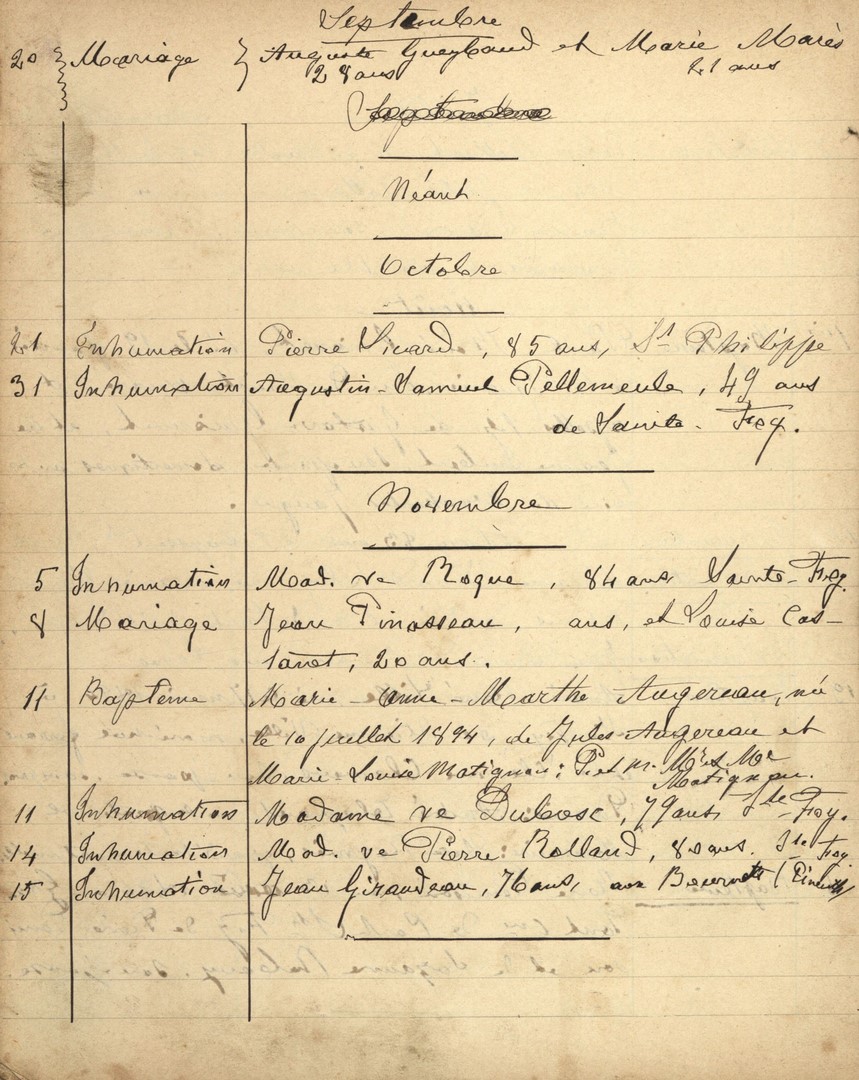 Septembre
20 Mariage Auguste Gueybaud et Marie Marès
28 ans 21 ans
Septembre
Néant
Octobre
21 Inhumation Pierre Sicard, 85 ans, St Philippe
31 Inhumation Augustin-Samuel Pellemeule, 49 ans
de Sainte-Foy.
Novembre
5 Inhumation Mad. ve Roque, 84 ans Sainte-Foy
8 Mariage Jean Pinasseau, ans, et Louise Cas-
tanet, 20 ans.
11 Baptême Marie-Anne-Marthe Augereau, née
le 10 juillet 1894, de Jules Augereau et
Marie-Louise Matignon; P. et m. Mr & Me
Matignon.
11 Inhumation Madame ve Dubosc, 79 ans Ste-Foy.
14 Inhumation Mad. ve Pierre Rolland, 80 ans. Ste Foy
15 Inhumation Jean Giraudeau, 76 ans, aux